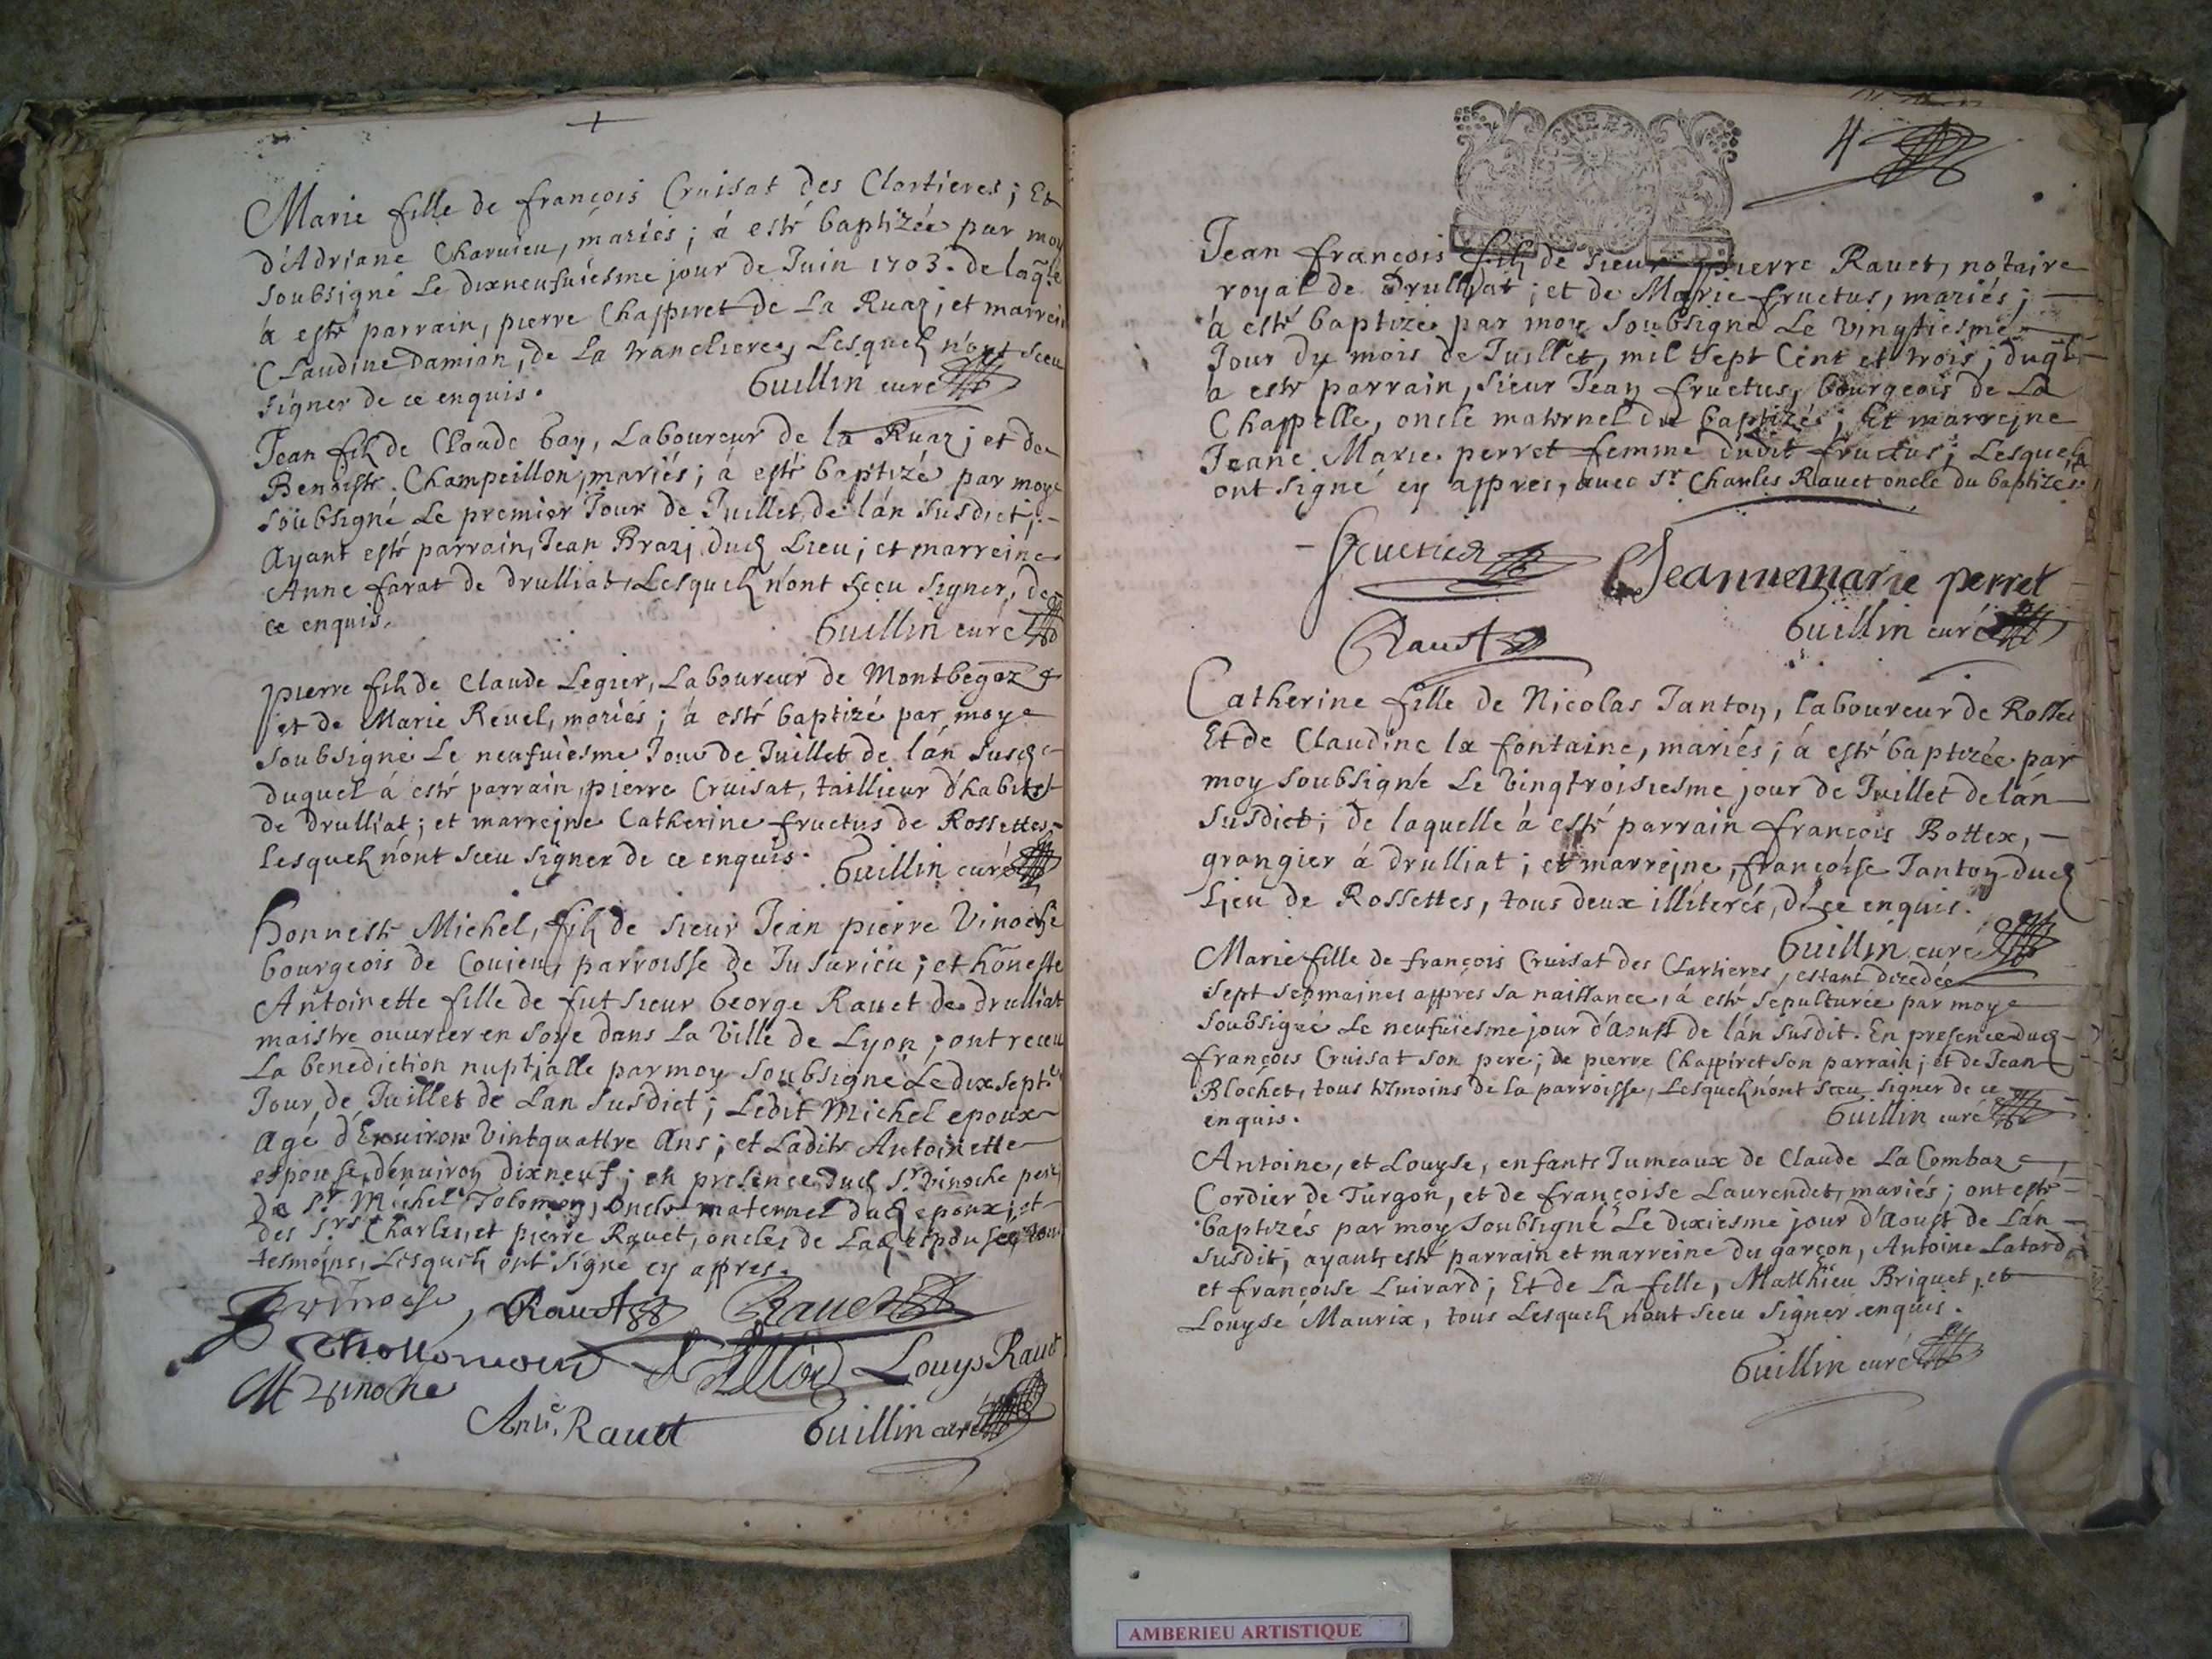 Marie fille de françois Cruisat des Clartieres; Et
d'Adriane Charuieu, mariés; á esté baptizée par moy
soubsigné Le dixneufuiesme jour de Juin 1703. de laqle
á esté parrain, pierre Chappiret de La Ruaz; et marreine
Claudine Damian, de La trancliere, Lesquels n'ont sceu
signer de ce enquis.
Guillin curé
Jean fils de Claude bay, Laboureur de la Ruaz; et de
Benoiste Champeillon, mariés; á esté baptizé par moy
soubsigné Le premier Jour de Juillet de l'án susdict;
Ayant esté parrain, Jean Brazj dud Lieu; et marreine
Anne farat de drulliat, Lesquels n'ont sceu signer, de
ce enquis.
Guillin curé
pierre fils de Claude Legier, Laboureur de Montbegoz
et de Marie Reuel, mariés; á esté baptizé par moy
soubsigné Le neufuiesme Jour de Juillet de l'án susd
duquel á esté parrain, pierre Cruisat, taillieur d'habits
de drulliat; et marrejne Catherine fructus de Rossettes,
lesquels n'ont sceu signer de ce enquis.
Guillin curé
honneste Michel, fils de sieur Jean pierre Vinoche
bourgeois de Coujeu, parroisse de Jusurieu; et hôneste
Antoinette fille de fut sieur George Rauet de drulliat
maistre ouurier en soye dans La Ville de Lyon; ont receu
La benediction nuptjalle par moy soubsigné Le dixsepte
Jour de Juillet de Lan susdict; Ledit Michel epoux
Agé d'Enuiron Vintquattre Ans; et Ladite Antoinette
espouse d'enuiron dixneuf; en presence dud Sr Vinoche pere
de Sr Michel Tolomon, oncle maternel dud epoux; et
des Srs Charles, et pierre Rauet, oncles de Lad espouse, tous
tesmoins, Lesquels ont signé cy appres.
Vinoche, Rauet Rauet
Louys Rauet
M Vinoche
Ante. Rauet
Guillin curé
4
Jean françois fils de sieur pierre Rauet, notaire
royal de Drulliat; et de Marie fructus, mariés;
á esté baptizé par moy soubsigné Le vingtiesme
Jour du mois de Juillet, mil sept Cent et trois; duql
á esté parrain, sieur Jean fructus, bourgeois de La
Chappelle, oncle maternel du baptizé; Et marrejne
Jeane Marie perret femme dudit fructus; Lesquels
ont signé cy appres, auec Sr Charles Rauet oncle du baptizé.
fructus
Jeannemarie perret
Rauet
Guillin curé
Catherine fille de Nicolas Janton, laboureur de Rosset
Et de Claudine la fontaine, mariés; á esté baptizée par
moy soubsigné Le Vingtroisiesme jour de Juillet de l'án
susdict; de laquelle á esté parrain françois Bottex,
grangier á drulliat; et marrejne, françoise Janton dud
Ljeu de Rossettes, tous deux illiterés, de ce enquis.
Guillin curé
Marie fille de françois Cruisat des Clartieres, estant decedée
sept sepmaines appres sa naissance, á esté sepulturée par moy
soubsigné Le neufuiesme jour d'Aoust de l'án susdit. En presence dud
françois Cruisat son pere; de pierre Chappiret son parrain; et de Jean
Blochet, tous tesmoins de la parroisse, Lesquels n'ont sceu signer de ce
enquis.
Guillin curé
Antoine, et Louyse, enfants Jumeaux de Claude La Combaz
Cordier de Turgon, et de françoise Laurendet, mariés; ont esté
baptizés par moy soubsigné Le dixiesme jour d'Aoust de L'án
susdit; ayants esté parrain et marreine du garçon, Antoine Latard
et françoise Luirard; Et de La fille, Matthieu Briquet, et
Louyse Maurix, tous Lesquels n'ont sceu signer enquis.
Guillin curé
AMBERIEU ARTISTIQUE